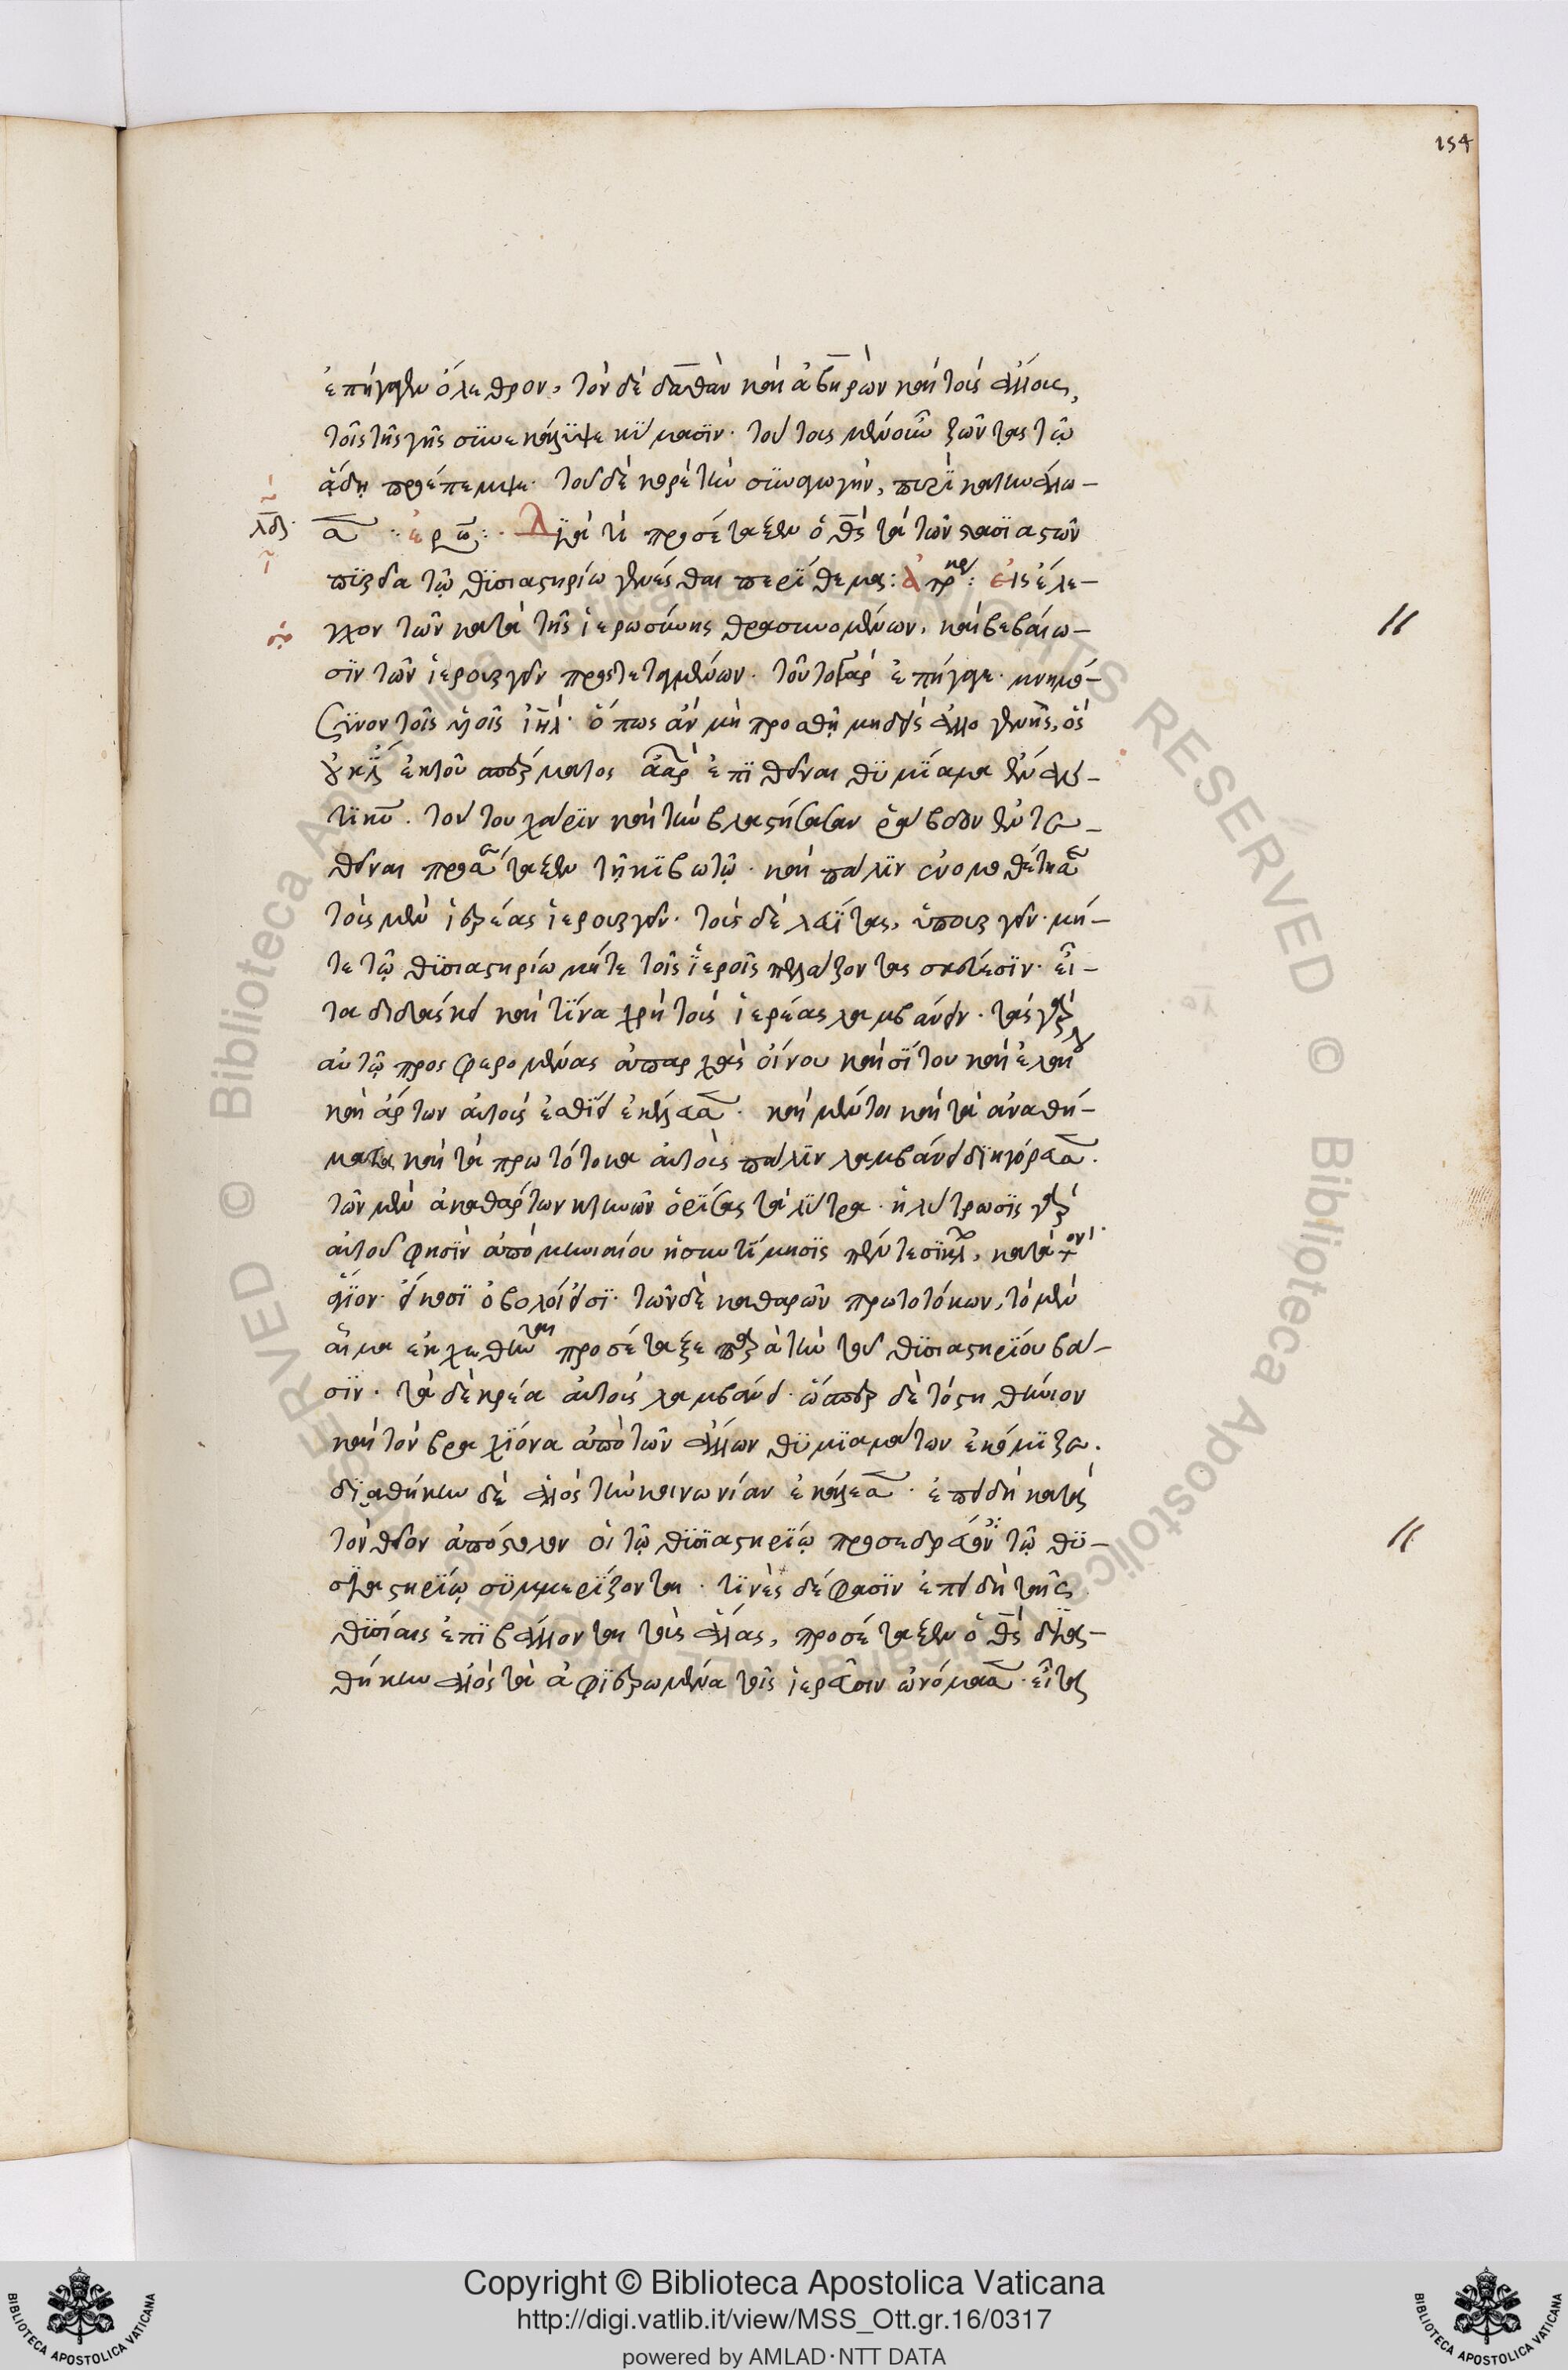 154
ἐπήγαγεν ὄλεθρον, τὸν δὲ δαθὰν καὶ ἀβηρὼν καὶ τοὺς ἄλλους,
τοῖς τῆς γῆς συνεκάλυψε κύμασιν· τούτους μὲν οὖν ζῶντας τῷ
ᾅδῃ παρέπεμψε· τοῦ δὲ κορὲ τὴν συναγωγὴν, πυρὶ κατηνάλω-
λδ
σε ·: ἐρώ: Διατί προσέταξεν ὁ θς̄ τὰ τῶν στασιαστῶν
πυρεῖα τῷ θυσιαστηρίω γενέσθαι περίθεμα: ἀπόκρ: εἰς ἔλε-
γχον τῶν κατὰ τῆς ἱερωσύνης θρασυνομένων, καὶ βεβαίω-
σιν τῶν ἱερουργεῖν προστεταγμένων. τοῦτο γὰρ ἐπήγαγε· μνημό-
συνον τοῖς υἱοῖς ἰηλ̄· ὅπως ἂν μὴ προσθῇ μηδεὶς ἀλλογενὴς, ὃς
οὐκ ἔστιν ἐκ τοῦ σπέρματος ἀαρ̄ ἐπιθεῖναι θυμίαμα ἔναντι
κῡ. τούτου χάριν καὶ τὴν βλαστήσασαν ῥάβδον ἐντε-
θῆναι προσέταξεν τῇ κιβωτῷ· καὶ πάλιν ἐνομοθέτησε
τοὺς μὲν ἱερέας ἱερουργεῖν· τοὺς δὲ λευίτας, ὑπουργεῖν· μή-
τε τῷ θυσιαστηρίω μήτε τοῖς ἱεροῖς πελάζοντας σκεύεσιν· εἶ-
τα διδάσκει καὶ τίνα χρὴ τοὺς ἱερέας λαμβάνειν· τὰς γὰρ
αὐτῷ προσφερομένας ἀπαρχὰς οἴνου καὶ σίτου καὶ ἐλαίου
καὶ ἄρτων αὐτοὺς ἐσθίειν ἐκέλευσε· καὶ μέντοι καὶ τὰ ἀναθή-
ματα καὶ τὰ πρωτότοκα αὐτοὺς πάλιν λαμβάνειν διηγόρευσε.
τῶν μὲν ἀκαθάρτων κτηνῶν ὁρίσας τὰ λύτρα· ἡ λύτρωσις γὰρ
αὐτοῦ φησὶν ἀπὸ μηνιαίου ἡ συντίμησις πέντε σίκλων, κατὰ τὸν
ἅγιον· εἴκοσι ὀβολοί εἰσι· τῶν δὲ καθαρῶν πρωτοτόκων, τὸ μὲν
αἷμα ἐκχεθῆναι προσέταξε παρὰ τὴν τοῦ θυσιαστηρίου βά-
σιν· τὰ δὲ κρέα αὐτοὺς λαμβάνειν· ὥσπερ δὲ τὸ στηθύνιον
καὶ τὸν βραχίονα ἀπὸ τῶν ἄλλων θυμιαμάτων ἐκόμιζον.
διαθήκην δὲ ἁλὸς τὴν κοινωνίαν ἐκάλεσε· ἐπειδὴ κατὰ
τὸν θεῖον ἀπόστολον οἱ τῷ θυσιαστηρίῳ προσεδρεύοντες τῷ θυ-
σιαστηρίῳ συμμερίζονται· τινὲς δέ φασιν ἐπειδὴ ταῖς
θυσίαις ἐπιβάλλονται τοὺς ἅλας, προσέταξεν ὁ θς̄ δια-
θήκην ἁλὸς τὰ ἀφιερωμένα τοῖς ἱερεῦσιν ὠνόμασε· εἶτα
Copyright © Biblioteca Apostolica Vaticana
http://digi.vatlib.it/view/MSS_Ott.gr.16/0317
powered by AMLAD·NTT DATA